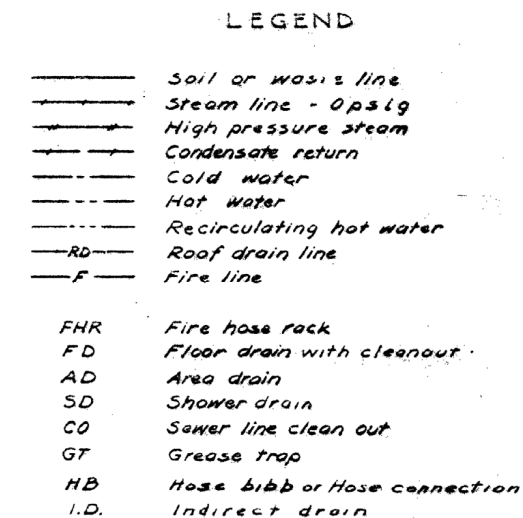 LEGEND
Soil or waste line
Steam line - 0 psig
High pressure steam
Condensate return
Cold water
Hot water
Recirculating hot water
RD Roof drain line
F Fire line
FHR Fire hose rack
FD Floor drain with cleanout
AD Area drain
SD Shower drain
CO Sewer line clean out
GT Grease trap
HB Hose bibb or Hose connection
I.D. Indirect drain